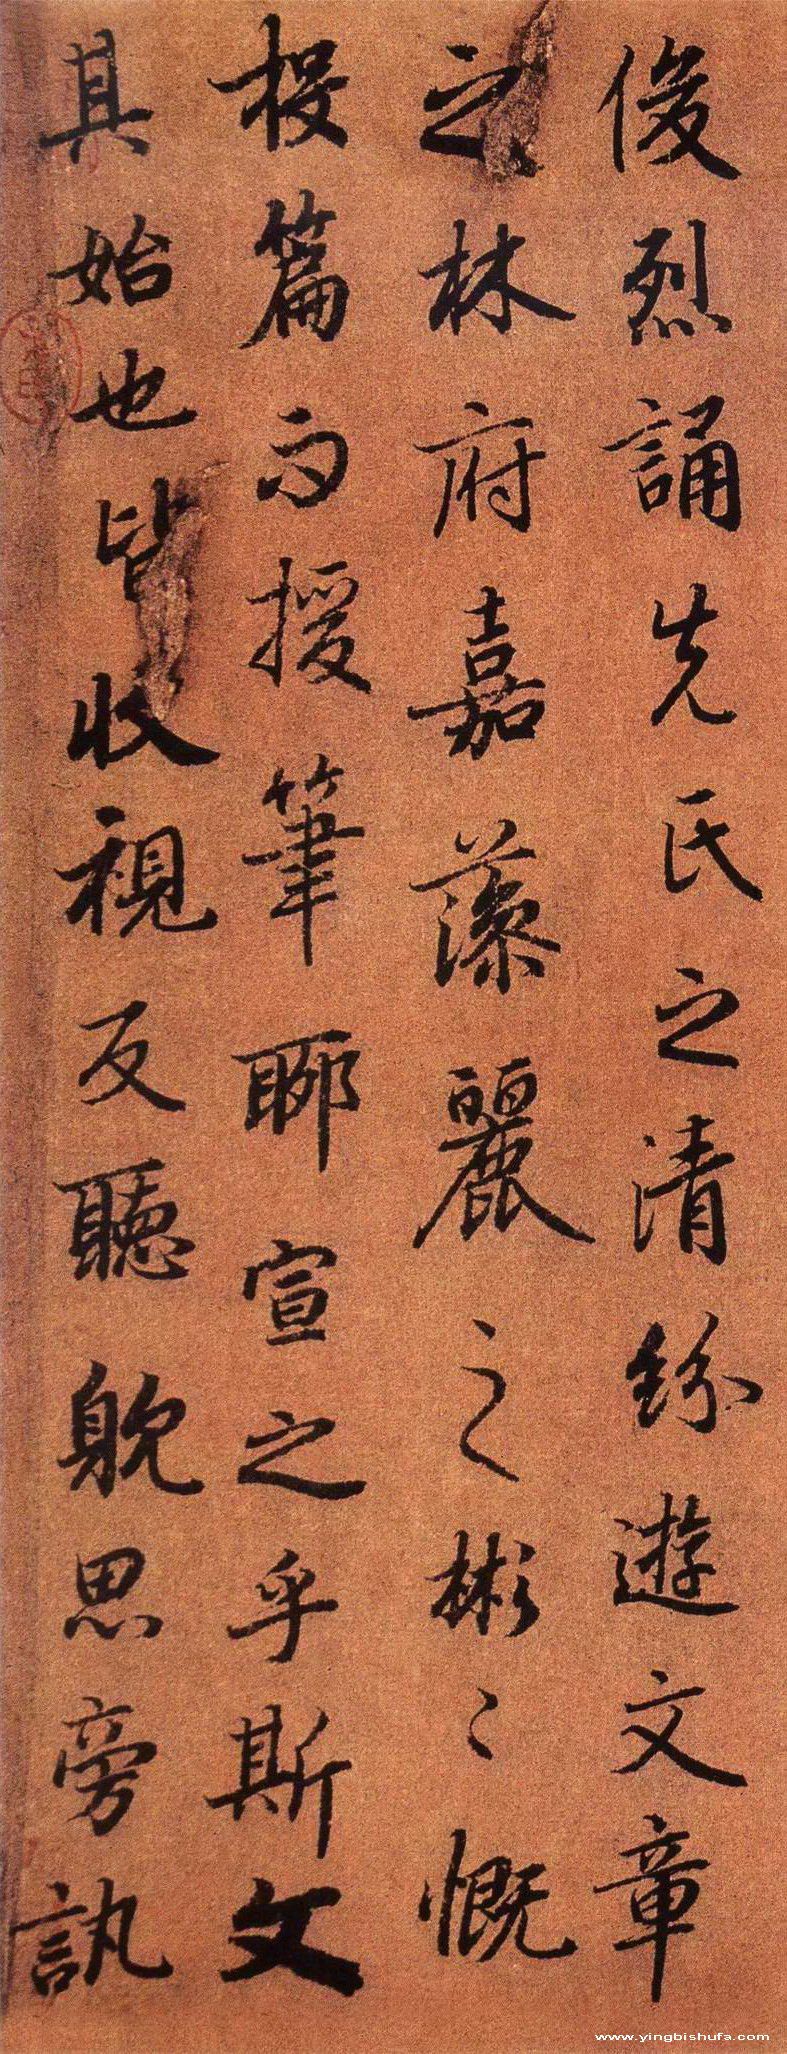 俊烈誦先氏之清紛遊文章
之林府嘉藻麗之彬〻慨
投篇而授筆聊宣之乎斯文
其始也皆收視反聽躭思旁訊
www.yingbishufa.com